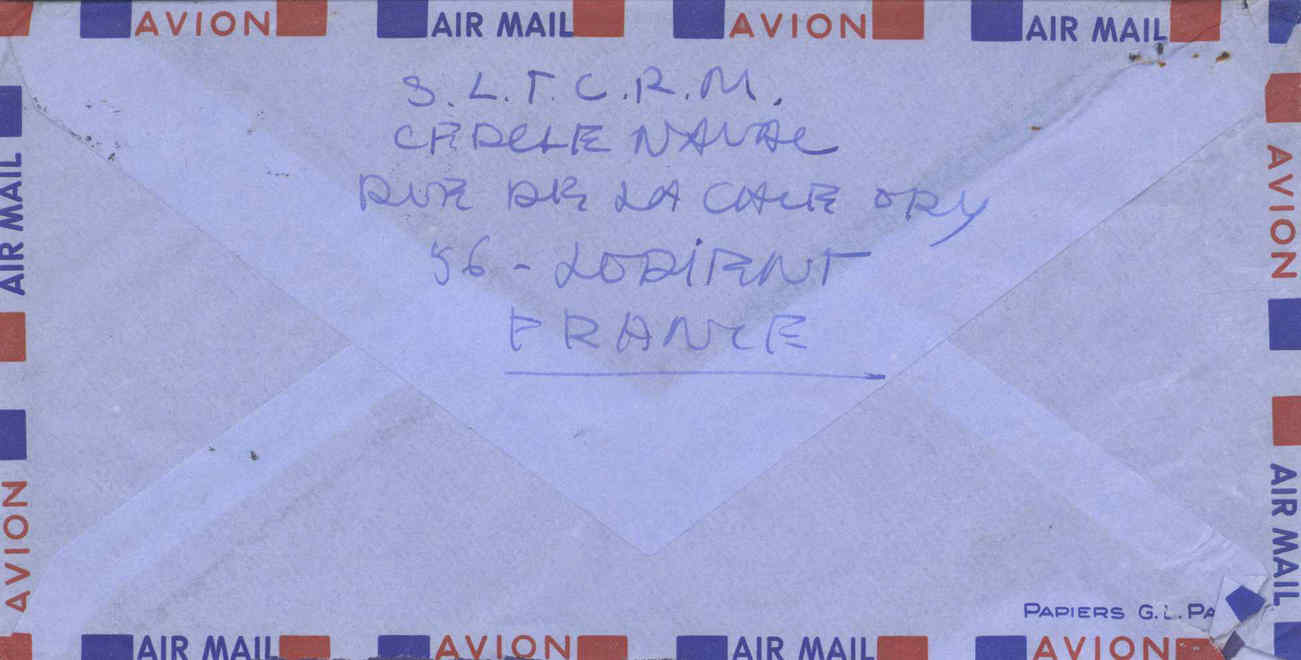 AVION AIR MAIL AVION AIR MAIL
S.L.T. C.R.M.
CERCLE NAVAL
RUE DE LA CALE ORY
56 - LORIENT
FRANCE
AIR MAIL
AVION
AVION
AIR MAIL
PAPIERS G.L.PA
AIR MAIL AVION AIR MAIL AVION